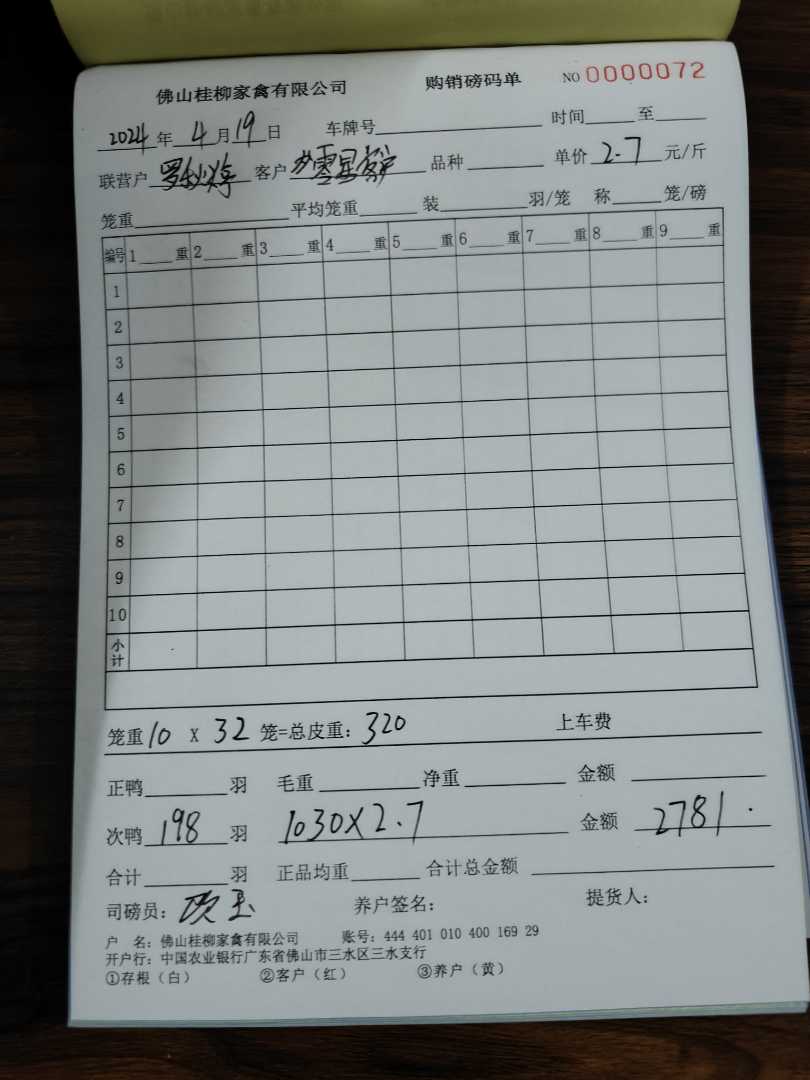 佛山桂柳家禽有限公司 购销磅码单 NO 0000072
2024年 4月19日 车牌号 时间 至
联营户 罗 客户 零星 品种 单价 2.7 元/斤
笼重 平均笼重 装 羽/笼 称 笼/磅
编号 1 重 2 重 3 重 4 重 5 重 6 重 7 重 8 重 9 重
1
2
3
4
5
6
7
8
9
10
小计
笼重 10 X 32 笼=总皮重: 320 上车费
正鸭 羽 毛重 净重 金额
次鸭 198 羽 1030X2.7 金额 2781.
合计 羽 正品均重 合计总金额
司磅员: 玉 养户签名: 提货人:
户 名: 佛山桂柳家禽有限公司 账号: 444 401 010 400 169 29
开户行: 中国农业银行广东省佛山市三水区三水支行
①存根（白） ②客户（红） ③养户（黄）